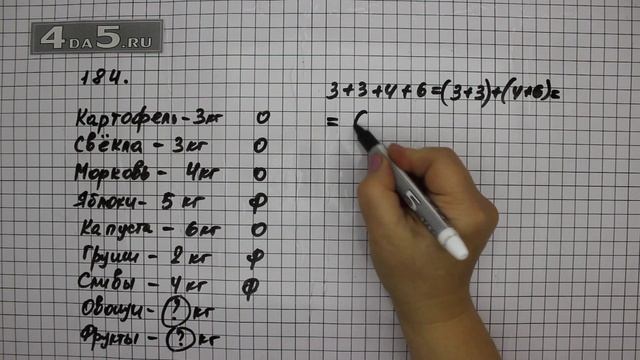 4DA5.RU
184.
Картофель - 3кг О
Свёкла - 3кг О
Морковь - 4кг О
Яблоки - 5 кг Ф
Капуста - 6кг О
Груши - 2 кг Ф
Сливы - 4 кг Ф
Овощи - ? кг
Фрукты - ? кг
3+3+4+6=(3+3)+(4+6)=
= (
5